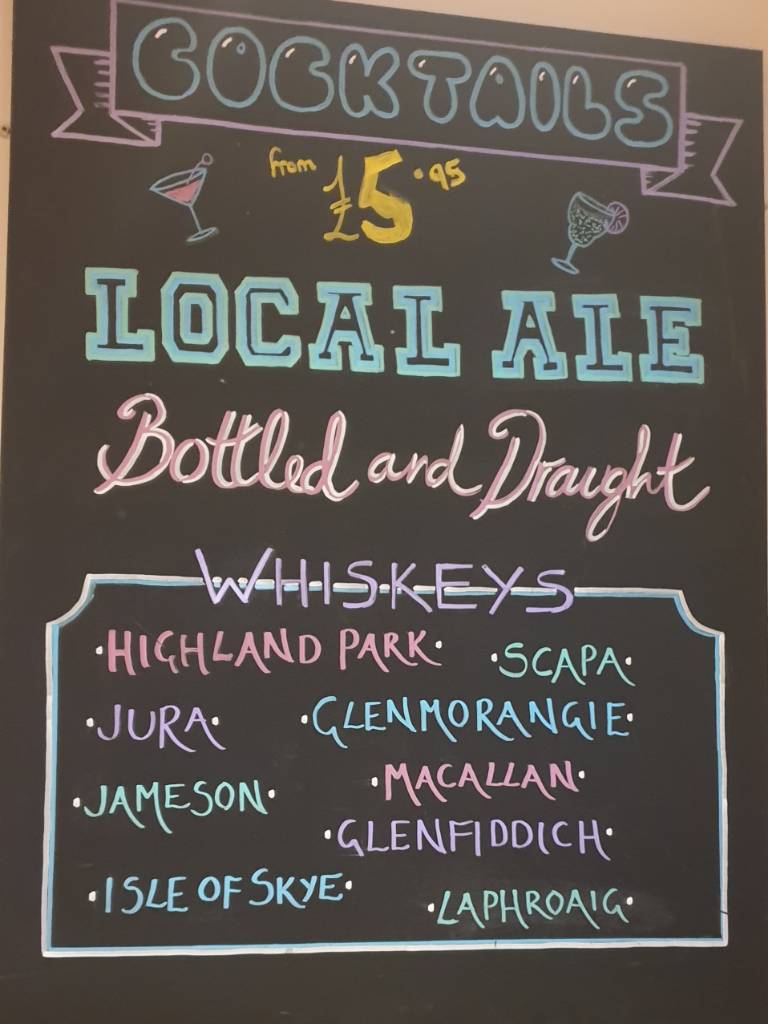 COCKTAILS
from £5.95
LOCAL ALE
Bottled and Draught
WHISKEYS
·HIGHLAND PARK· ·SCAPA·
·JURA· ·GLENMORANGIE·
·JAMESON· ·MACALLAN·
·GLENFIDDICH·
·ISLE OF SKYE· ·LAPHROAIG·